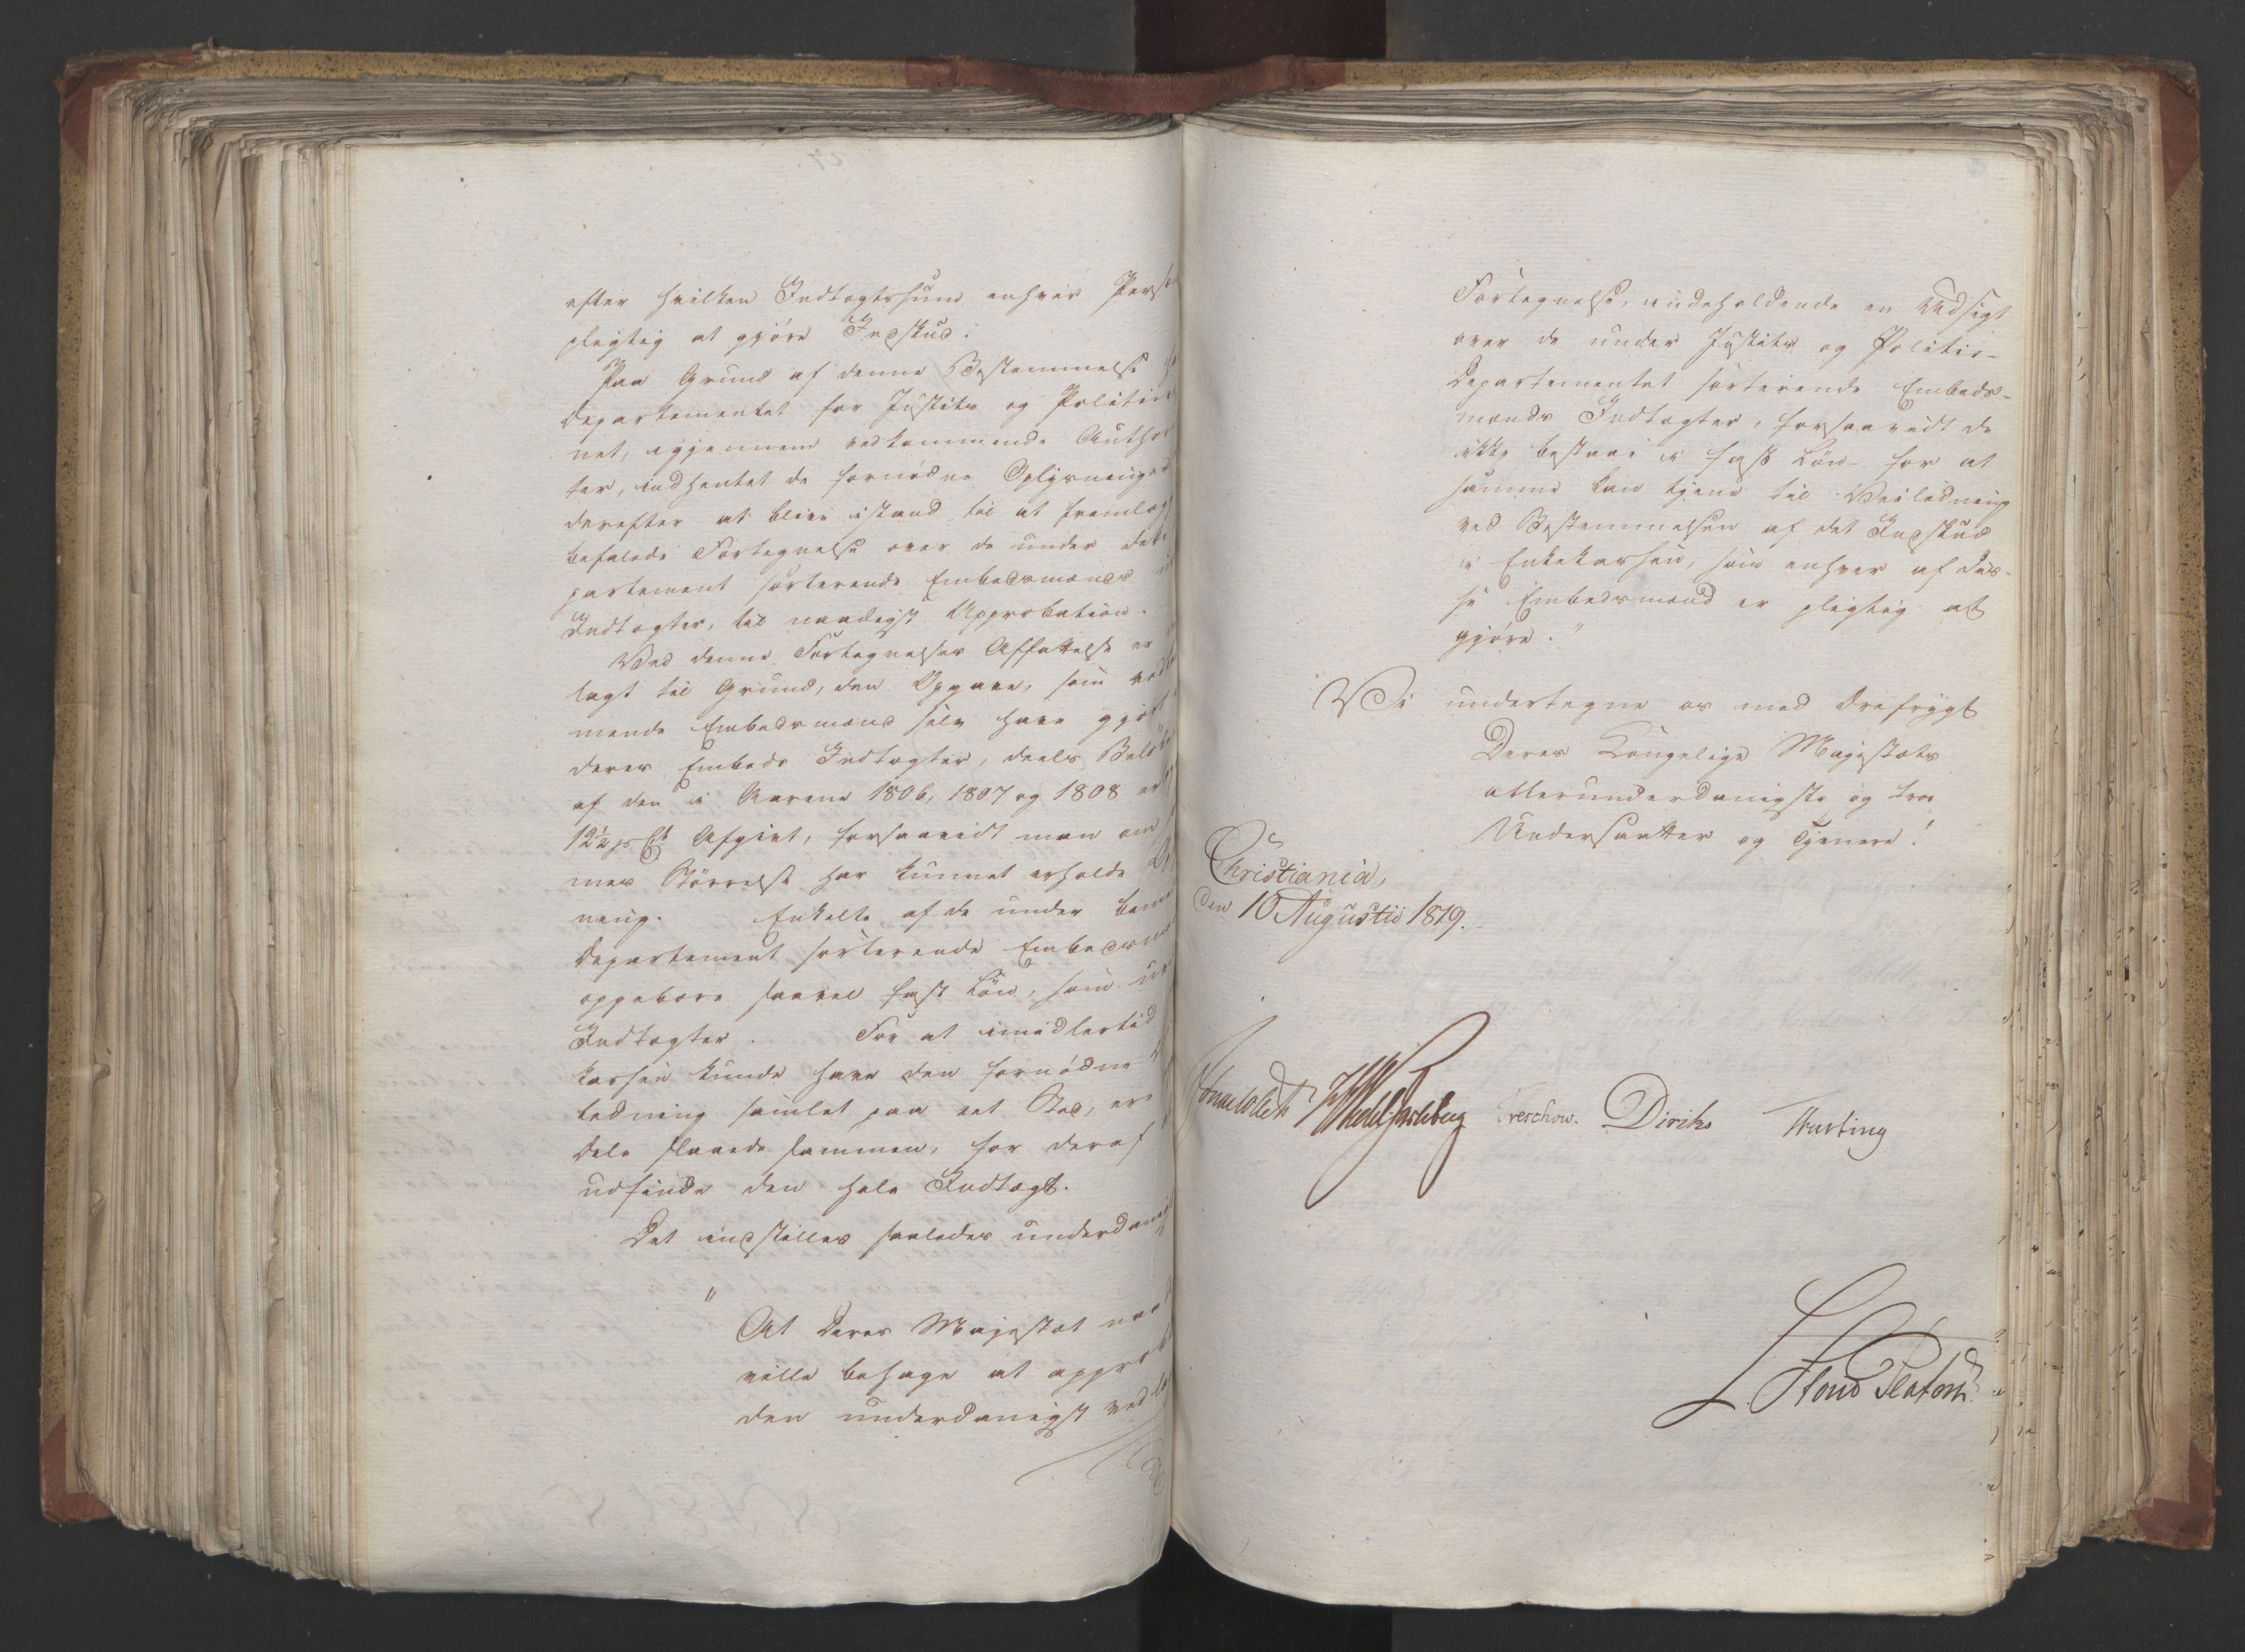 efter hvilken Indtægtssum enhver Perso
pligtig at gjøre Indskud.
Paa Grund af denne Bestemmelse ha
Departementet for Justits og Politie
net, igjennem vedkommende Authori
ter, indhentet de fornødne Oplysninger
derefter at blive istand til at fremlæg
befalede Fortegnelse over de under dette
partement sorterende Embedsmænds
Indtægter, til naadigst Approbation.
Ved denne Fortegnelses Affattelse er
lagt til Grund, den Opgave, som vedko
mende Embedsmænd selv have gjort
deres Embeds Indtægter, deels Beløbe
af den i Aarene 1806, 1807 og 1808 erlag
12½ pr Ct Afgivt, forsaavidt man om
mes Størrelse har kunnet erholde Op
ning. Enkelte af de under bem
Departement sorterende Embedsmæ
oppebære saavel fast Løn, som u
Indtægter. For at imidlertid
kassen kunde have den fornødne
ledning samlet paa eet Sted, ere
Dele slaaede sammen, for deraf
udfinde den hele Indtægt.
Det indstilles saaledes underdanig
" At Deres Majestæt naad
ville behage at approb
den underdanigst vedla
Fortegnelse, indeholdende en Udsigt
over de under Justits og Politie-
Departementet sorterende Embeds-
mænds Indtægter, forsaavidt de
ikke bestaae i fast Løn - for at
samme kan tjene til Veiledning
ved Bestemmelsen af det Indskud
i Enkekassen, som enhver af dis-
se Embedsmænd er pligtig at
gjøre."
Vi undertegne os med Ærefrygt
Deres Kongelige Majestæts
allerunderdanigste og troe
Undersaatter og Tjenere!
Christiania,
den 10 Augustii 1819.
Sommerhielm HWedel Jarlsberg Treschow. Diriks Fasting
L. Stoud Platou